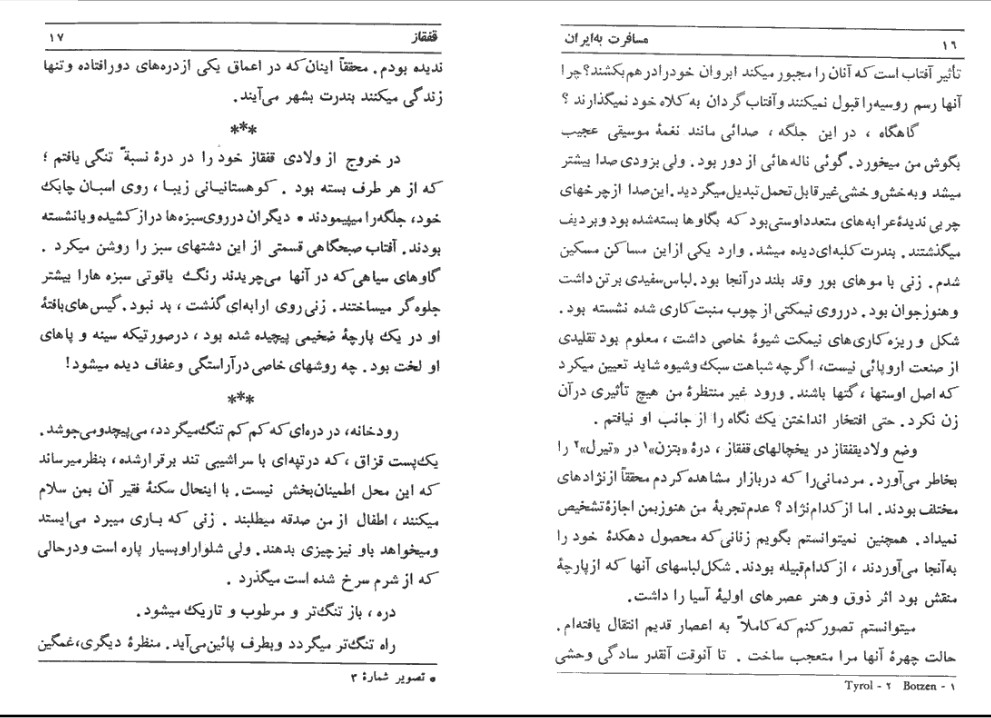 ۱۶
مسافرت به‌ایران
تأثیر آفتاب است که آنان را مجبور میکند ابروان خودرا درهم بکشند؟ چرا
آنها رسم روسیه‌را قبول نمیکنند و آفتاب گردان به‌کلاه خود نمیگذارند ؟
گاهگاه ، در این جلگه ، صدائی مانند نغمهٔ موسیقی عجیب
بگوش من میخورد . گوئی ناله‌هائی از دور بود . ولی بزودی صدا بیشتر
میشد و به‌خش و خشی غیرقابل تحمل تبدیل میگردید . این صدا از چرخهای
چربی ندیدهٔ عرابه‌های متعدد اوستی بود که بگاوها بسته‌شده بود و بردیف
میگذشتند . بندرت کلبه‌ای دیده میشد . وارد یکی از این مساکن مسکین
شدم . زنی با موهای بور وقد بلند در آنجا بود . لباس سفیدی برتن داشت
و هنوز جوان بود . در روی نیمکتی از چوب منبت کاری شده نشسته بود .
شکل و ریزه کاری‌های نیمکت شیوهٔ خاصی داشت ، معلوم بود تقلیدی
از صنعت اروپائی نیست، اگرچه شباهت سبک وشیوه شاید تعیین میکرد
که اصل اوستها ، گتها باشند . ورود غیر منتظرهٔ من هیچ تأثیری در آن
زن نکرد . حتی افتخار انداختن یک نگاه را از جانب او نیافتم .
وضع ولادیقفقاز در یخچالهای قفقاز ، درهٔ «بتزن»۱ در «تیرل»۲ را
بخاطر می‌آورد . مردمانی‌را که دربازار مشاهده کردم محققاً از نژادهای
مختلف بودند . اما از کدام نژاد ؟ عدم تجربهٔ من هنوز بمن اجازهٔ تشخیص
نمیداد . همچنین نمیتوانستم بگویم زنانی که محصول دهکدهٔ خود را
به‌آنجا می‌آوردند ، از کدام قبیله بودند . شکل لباسهای آنها که از پارچهٔ
منقش بود اثر ذوق وهنر عصرهای اولیهٔ آسیا را داشت .
میتوانستم تصور کنم که کاملاً به اعصار قدیم انتقال یافته‌ام .
حالت چهرهٔ آنها مرا متعجب ساخت . تا آنوقت آنقدر سادگی وحشی
۱ - Botzen ۲ - Tyrol
قفقاز
۱۷
ندیده بودم . محققاً اینان که در اعماق یکی از دره‌های دورافتاده وتنها
زندگی میکنند بندرت بشهر می‌آیند .
***
در خروج از ولادی قفقاز خود را در درهٔ نسبةً تنگی یافتم ؛
که از هر طرف بسته بود . کوهستانیانی زیبا ، روی اسبان چابک
خود، جلگه‌را میپیمودند * دیگران درروی سبزه‌ها دراز کشیده ویا نشسته
بودند . آفتاب صبحگاهی قسمتی از این دشتهای سبز را روشن میکرد .
گاوهای سیاهی که در آنها می‌چریدند رنگ یاقوتی سبزه هارا بیشتر
جلوه گر میساختند . زنی روی ارابه‌ای گذشت ، بد نبود . گیس‌های بافتهٔ
او در یک پارچهٔ ضخیمی پیچیده شده بود ، درصورتیکه سینه و پاهای
او لخت بود . چه روشهای خاصی درآراستگی وعفاف دیده میشود !
***
رودخانه ، در دره‌ای که کم کم تنگ میگردد، می‌پیچد و می‌جوشد .
یک پست قزاق ، که درتپه‌ای با سراشیبی تند برقرارشده ، بنظر میرساند
که این محل اطمینان‌بخش نیست . با اینحال سکنهٔ فقیر آن بمن سلام
میکنند ، اطفال از من صدقه میطلبند . زنی که باری میبرد می‌ایستد
ومیخواهد باو نیز چیزی بدهند . ولی شلوار او بسیار پاره است ودرحالی
که از شرم سرخ شده است میگذرد .
دره ، باز تنگ‌تر و مرطوب و تاریک میشود .
راه تنگ‌تر میگردد وبطرف پائین می‌آید . منظرهٔ دیگری، غمگین
* تصویر شمارهٔ ۳